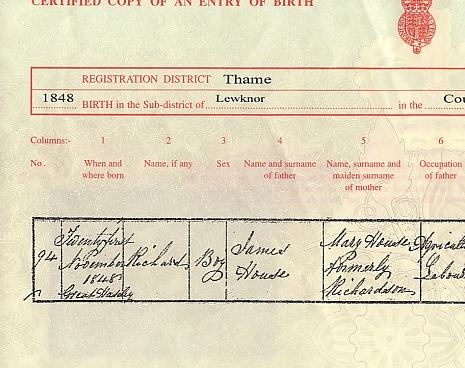 CERTIFIED COPY OF AN ENTRY OF BIRTH
REGISTRATION DISTRICT Thame
1848 BIRTH in the Sub-district of Lewknor in the Cou
Columns:- 1 2 3 4 5 6
No. When and where born Name, if any Sex Name and surname of father Name, surname and maiden surname of mother Occupation of father
94 Twenty first November 1848 Great Haseley Richard Boy James House Mary House Formerly Richardson Agricult Labour